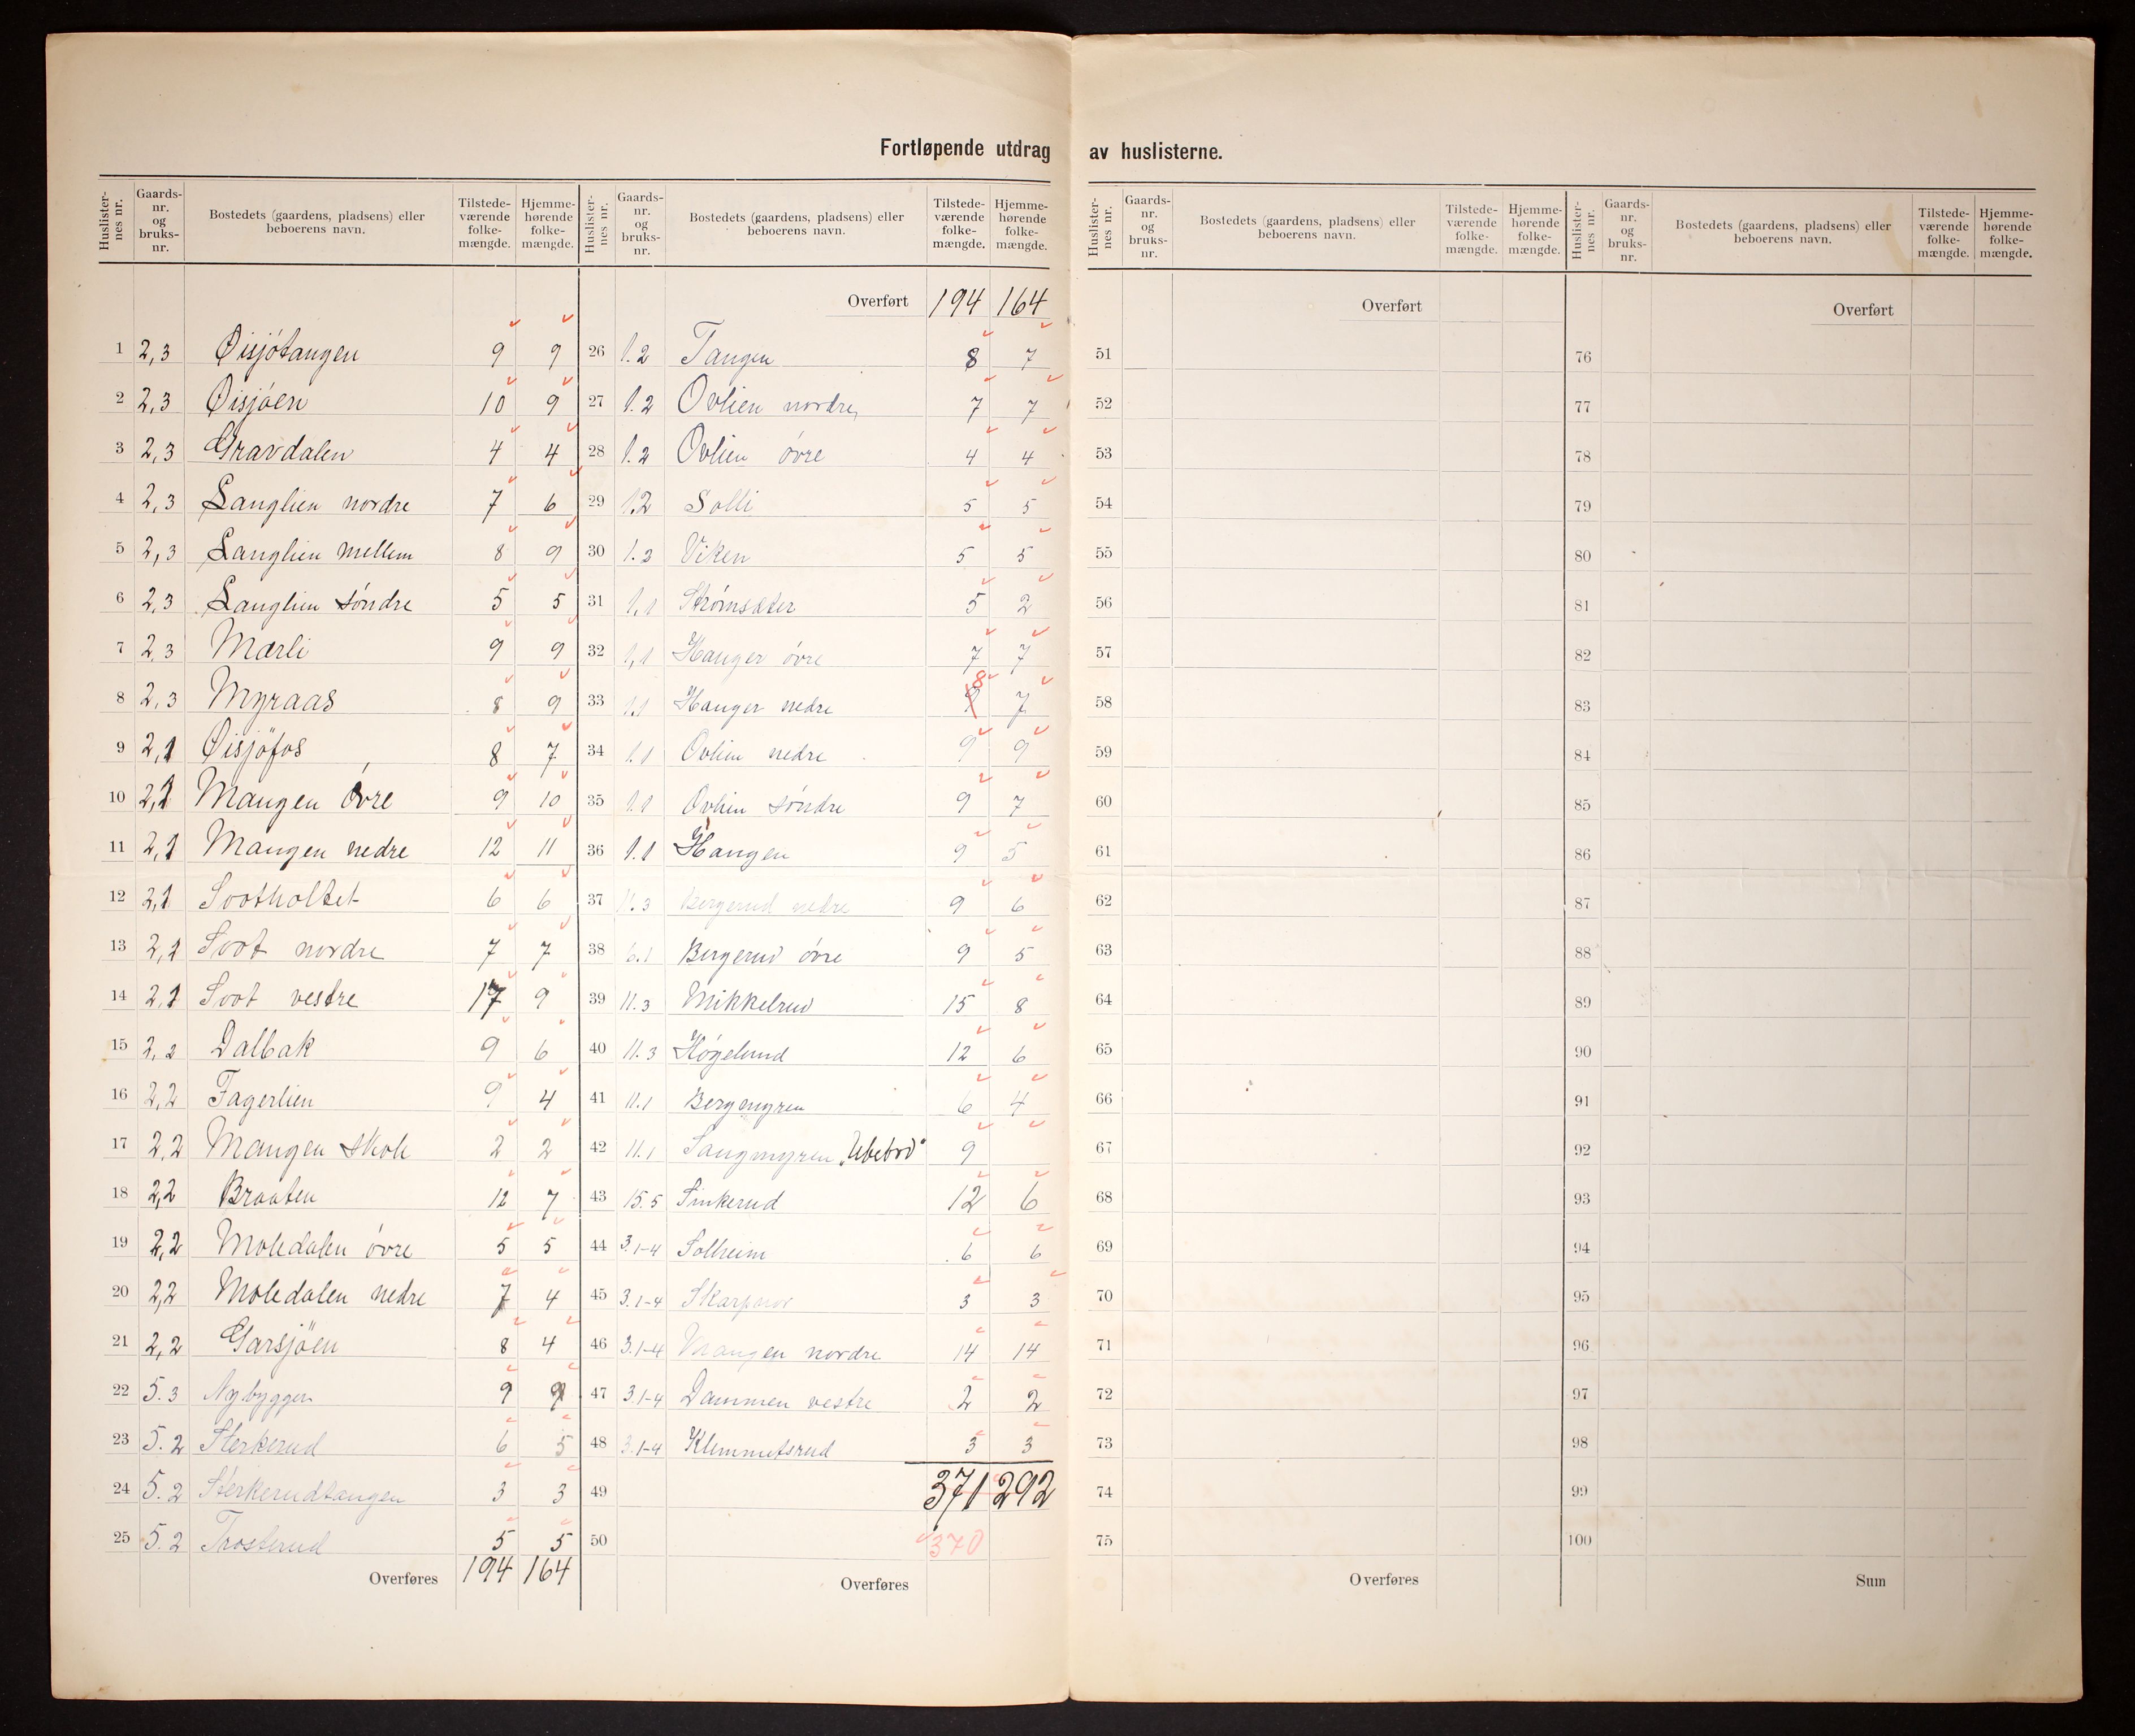 Fortløpende utdrag av huslisterne.
Huslister-nes nr. Gaards-nr. og bruks-nr. Bostedets (gaardens, pladsens) eller beboerens navn. Tilstede-værende folke-mængde. Hjemme-hørende folke-mængde.
1 2,3 Øisjötangen 9 9
2 2,3 Øisjöen 10 9
3 2,3 Gravdalen 4 4
4 2,3 Langlien nordre 7 6
5 2,3 Langlien mellem 8 9
6 2,3 Langlien söndre 5 5
7 2,3 Mærli 9 9
8 2,3 Myraas 8 9
9 2,1 Øisjöfos 8 7
10 2,1 Mangen Övre 9 10
11 2,1 Mangen nedre 12 11
12 2,1 Sootholtet 6 6
13 2,1 Soot nordre 7 7
14 2,1 Soot vestre 17 9
15 2,2 Dalbak 9 6
16 2,2 Fagerlien 9 4
17 2,2 Mangen skole 2 2
18 2,2 Braaten 12 7
19 2,2 Moledalen övre 5 5
20 2,2 Moledalen nedre 7 4
21 2,2 Garsjöen 8 4
22 5.3 Nybyggen 9 9
23 5.2 Sterkerud 6 5
24 5.2 Sterkerudtangen 3 3
25 5.2 Trosterud 5 5
Overføres 194 164
Huslister-nes nr. Gaards-nr. og bruks-nr. Bostedets (gaardens, pladsens) eller beboerens navn. Tilstede-værende folke-mængde. Hjemme-hørende folke-mængde.
Overført 194 164
26 1.2 Tangen 8 7
27 1.2 Ovlien nordre 7 7
28 1.2 Ovlien övre 4 4
29 1.2 Solli 5 5
30 1.2 Viken 5 5
31 1,1 Strömsæter 5 2
32 1,1 Hanger övre 7 7
33 1.1 Hanger nedre 8 7
34 1.1 Ovlien nedre 9 9
35 1.1 Ovlien söndre 9 7
36 1.1 Haugen 9 5
37 11.3 Bergerud nedre 9 6
38 6.1 Bergerud övre 9 5
39 11.3 Mikkelrud 15 8
40 11.3 Høgelund 12 6
41 11.1 Bergmyren 6 4
42 11.1 Langmyren „Ubebod" 9
43 15.5 Sinkerud 12 6
44 3.1-4 Solheim 6 6
45 3.1-4 3 3
46 3.1-4 Mangen nordre 14 14
47 3.1-4 Dammen vestre 2 2
48 3.1-4 Klemmetsrud 3 3
49 371 292
50 370
Overføres
Huslister-nes nr. Gaards-nr. og bruks-nr. Bostedets (gaardens, pladsens) eller beboerens navn. Tilstede-værende folke-mængde. Hjemme-hørende folke-mængde.
Overført
51
52
53
54
55
56
57
58
59
60
61
62
63
64
65
66
67
68
69
70
71
72
73
74
75
Overføres
Huslister-nes nr. Gaards-nr. og bruks-nr. Bostedets (gaardens, pladsens) eller beboerens navn. Tilstede-værende folke-mængde. Hjemme-hørende folke-mængde.
Overført
76
77
78
79
80
81
82
83
84
85
86
87
88
89
90
91
92
93
94
95
96
97
98
99
100
Sum